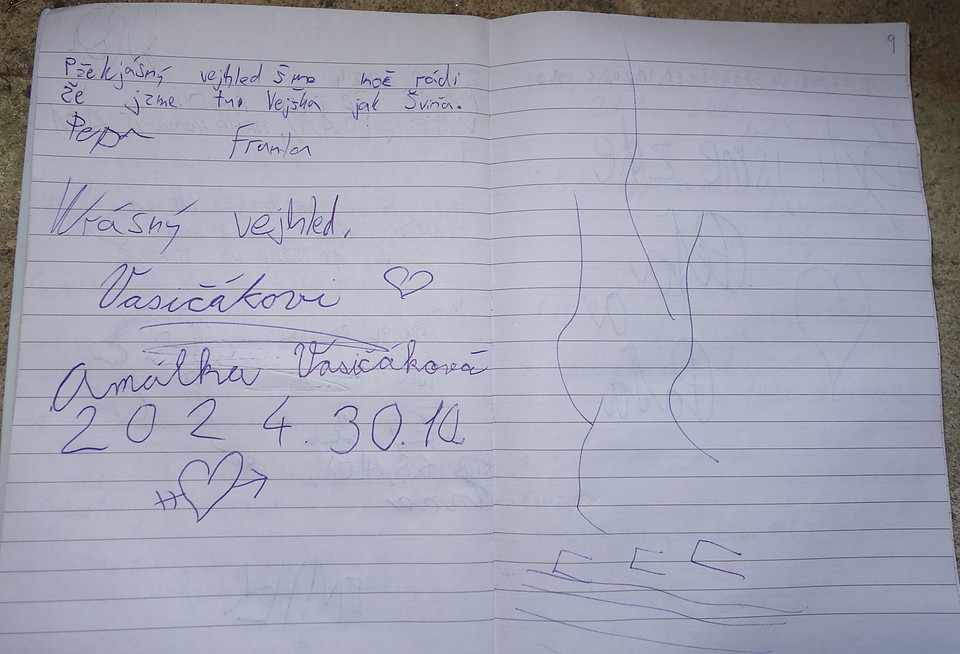 9
Pžekjásný vejhled šme noč rádi
že jzme tu. Vejška jak Šviňa.
Pepa Franta
Krásný vejhled.
Vasičákovi
Amálka Vasičáková
2024.30.10.